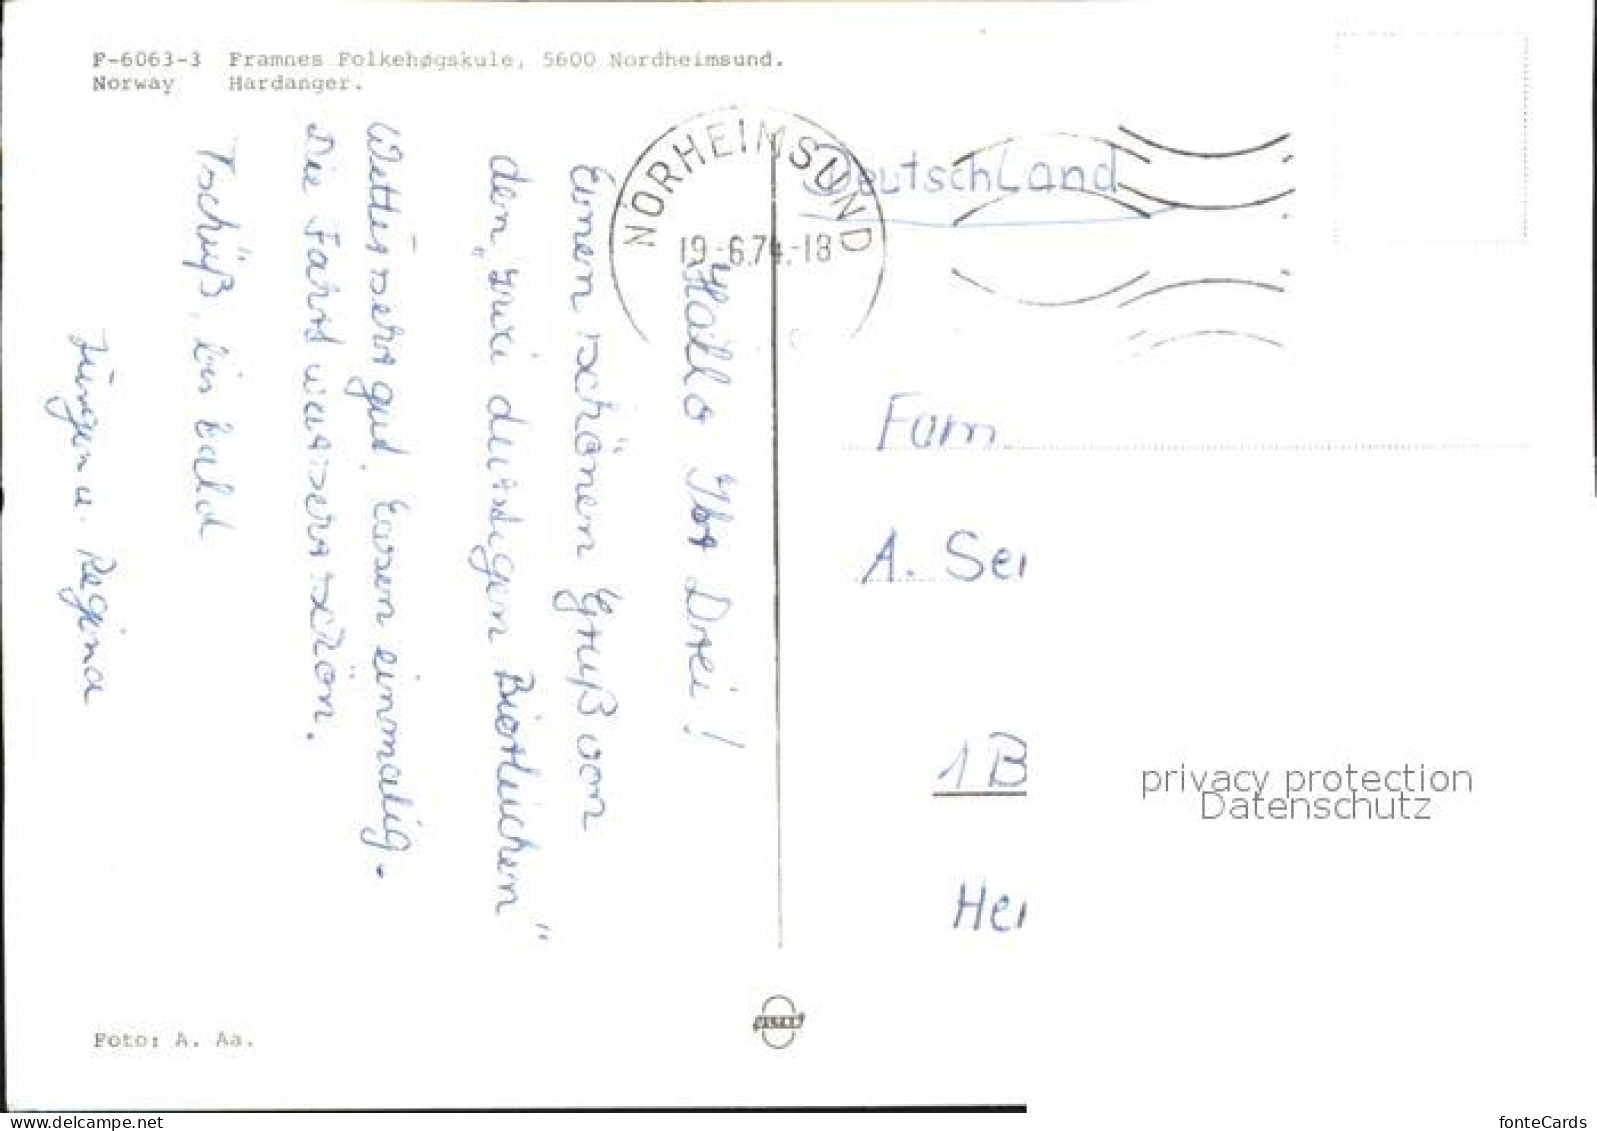 F-6063-3 Framnes Folkehøgskule, 5600 Nordheimsund.
Norway Hardanger.
NORHEIMSUND
19-6.74.-18
Deutschland
Hallo Ihr Drei!
Einen schönen Gruß von
den „zwei durstigen Bierleichen“
Wetter sehr gut. Essen einmalig.
Die Fahrt war sehr schön.
Tschüß, bis bald
Jürgen u. Regina
Fam.
A. Ser
1 B
Her
privacy protection
Datenschutz
Foto: A. Aa.
www.delcampe.net
fonteCards